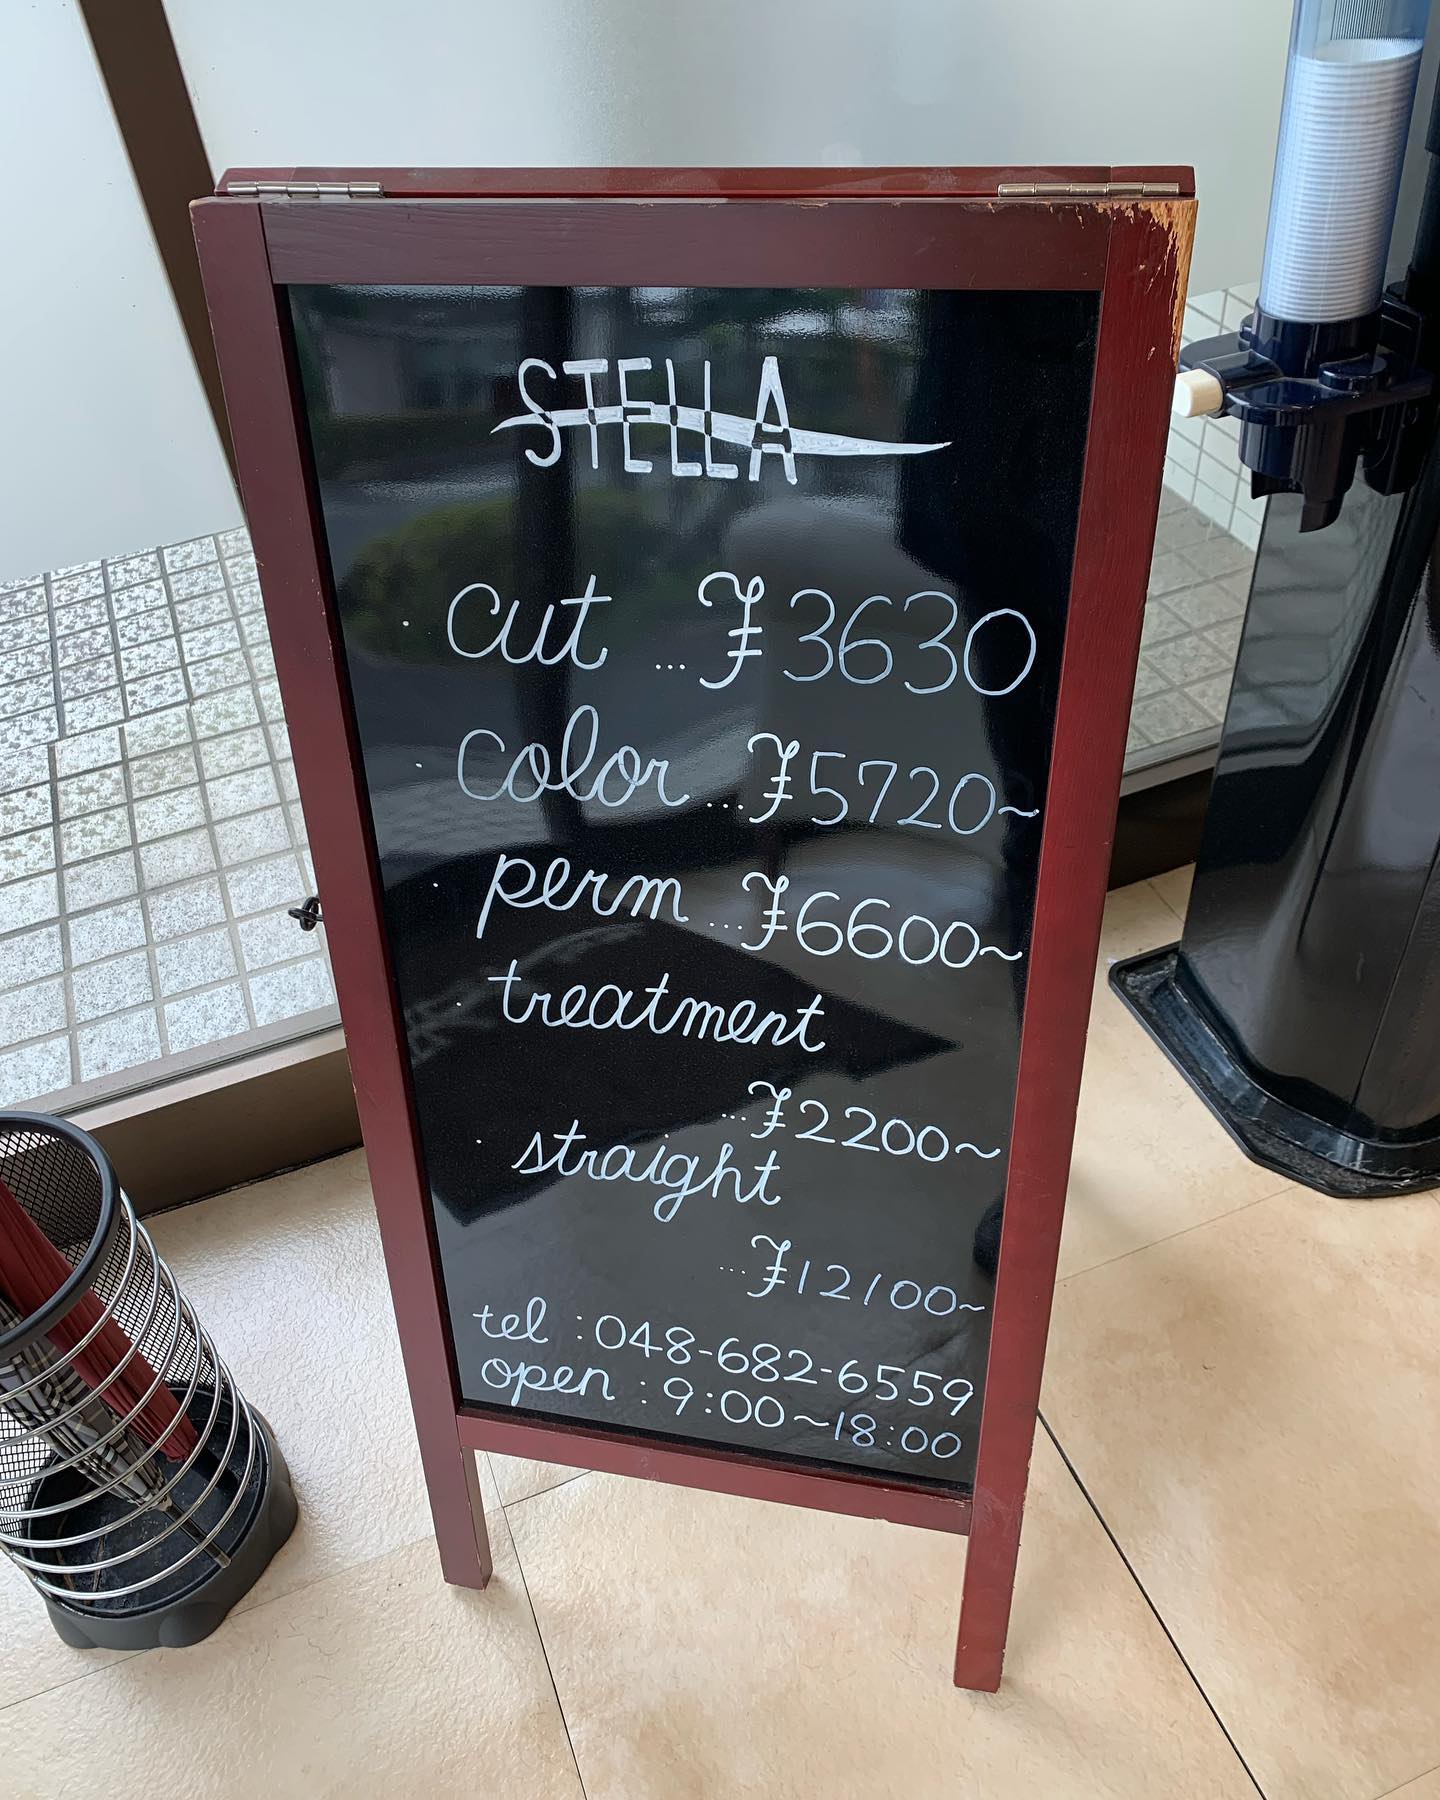 STELLA
· cut ... ¥3630
· color ... ¥5720~
· perm ... ¥6600~
· treatment
... ¥2200~
· straight
... ¥12100~
tel : 048-682-6559
open : 9:00~18:00